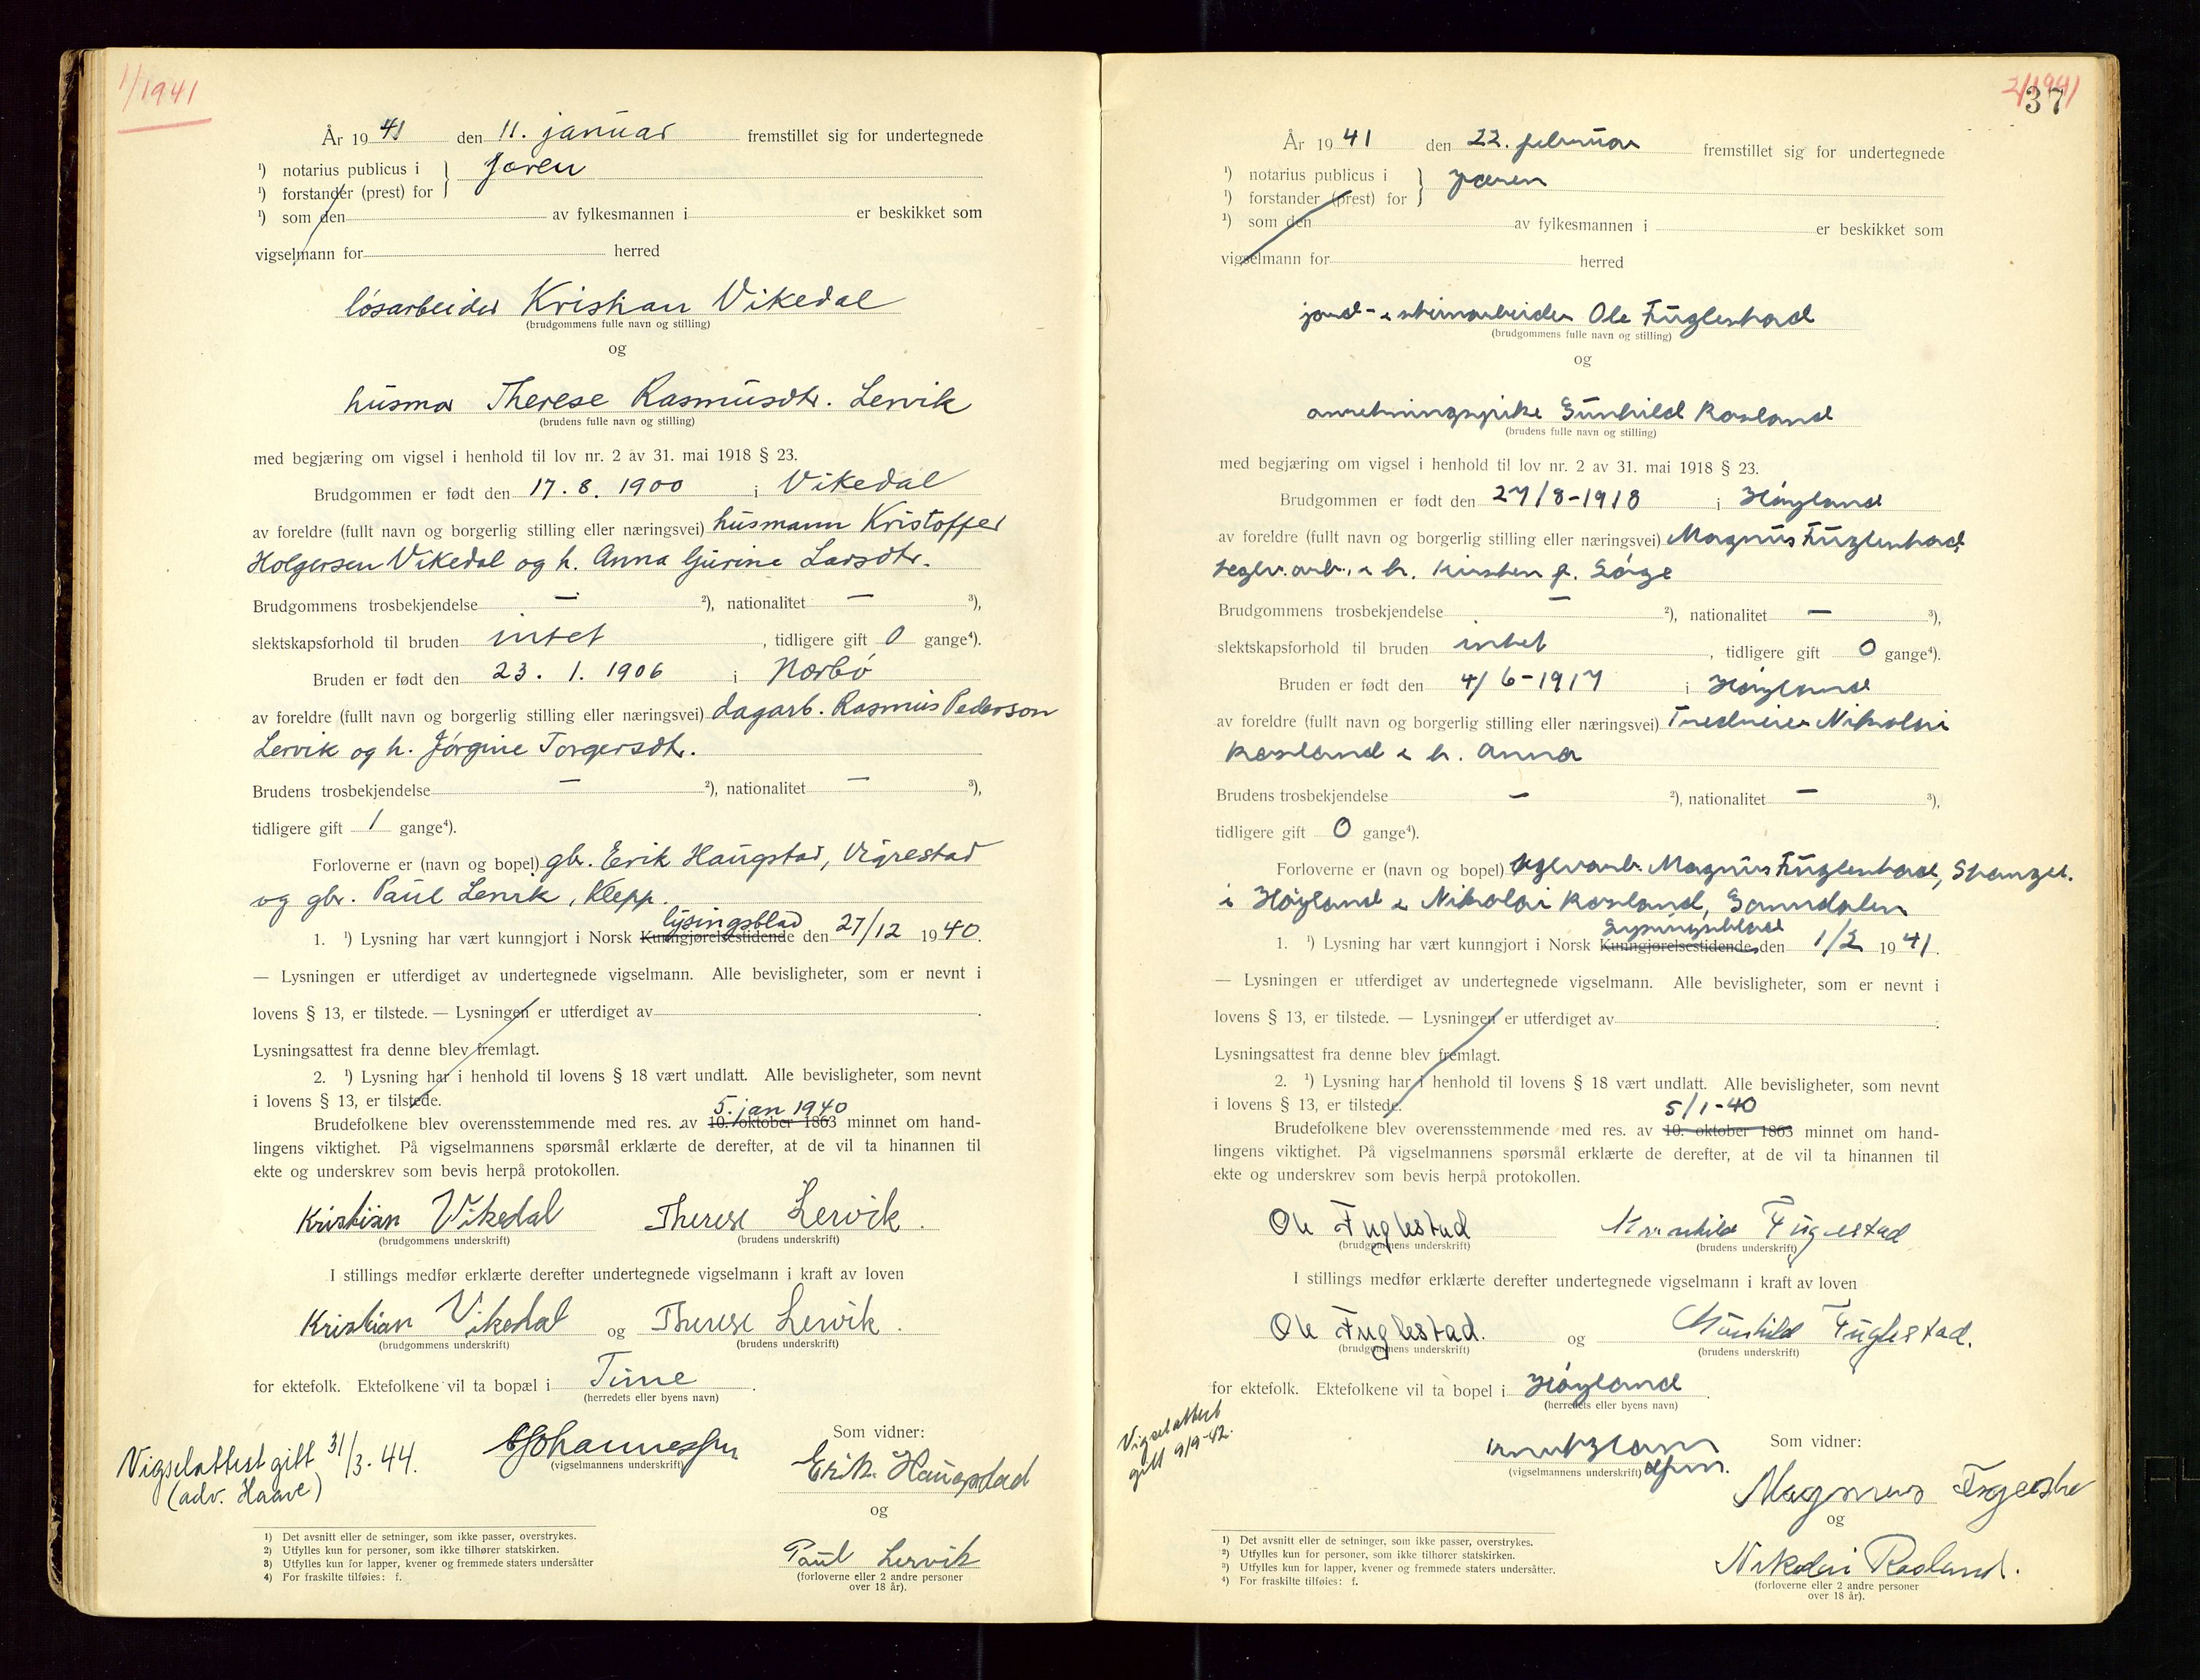 1/1941
År 19 41 den 11. januar fremstillet sig for undertegnede
¹) notarius publicus i } Jæren
¹) forstander (prest) for
¹) som den av fylkesmannen i er beskikket som
vigselmann for herred
løsarbeider Kristian Vikedal
(brudgommens fulle navn og stilling)
og
husmor Therese Rasmusdtr. Lervik
(brudens fulle navn og stilling)
med begjæring om vigsel i henhold til lov nr. 2 av 31. mai 1918 § 23.
Brudgommen er født den 17. 8. 1900 i Vikedal
av foreldre (fullt navn og borgerlig stilling eller næringsvei) husmann Kristoffer
Holgersen Vikedal og h. Anna Gurine Larsdtr.
Brudgommens trosbekjendelse — ²), nationalitet — ³),
slektskapsforhold til bruden intet, tidligere gift 0 gange⁴).
Bruden er født den 23. 1. 1906 i Nærbø
av foreldre (fullt navn og borgerlig stilling eller næringsvei) dagarb. Rasmus Pederson
Lervik og h. Jørgine Torgersdtr.
Brudens trosbekjendelse — ²), nationalitet — ³),
tidligere gift 1 gange⁴).
Forloverne er (navn og bopel) gbr. Erik Haugstad, Vigrestad
og gbr. Paul Lervik, Klepp.
lysingsblad
1. ¹) Lysning har vært kunngjort i Norsk Kunngjørelsestidende den 27/12 1940.
— Lysningen er utferdiget av undertegnede vigselmann. Alle bevisligheter, som er nevnt i
lovens § 13, er tilstede. — Lysningen er utferdiget av .
Lysningsattest fra denne blev fremlagt.
2. ¹) Lysning har i henhold til lovens § 18 vært undlatt. Alle bevisligheter, som nevnt
i lovens § 13, er tilstede.
5. jan 1940
Brudefolkene blev overensstemmende med res. av 10. oktober 1863 minnet om hand-
lingens viktighet. På vigselmannens spørsmål erklærte de derefter, at de vil ta hinannen til
ekte og underskrev som bevis herpå protokollen.
Kristian Vikedal Therese Lervik.
(brudgommens underskrift) (brudens underskrift)
I stillings medfør erklærte derefter undertegnede vigselmann i kraft av loven
Kristian Vikedal og Therese Lervik.
(brudgommens underskrift) (brudens underskrift)
for ektefolk. Ektefolkene vil ta bopæl i Time.
(herredets eller byens navn)
Vigselattest gitt 31/3-44.
(adv. Haave)
(vigselmannens underskrift)
Som vidner:
Erik Haugstad
og
Paul Lervik
(forloverne eller 2 andre personer
over 18 år).
1) Det avsnitt eller de setninger, som ikke passer, overstrykes.
2) Utfylles kun for personer, som ikke tilhører statskirken.
3) Utfylles kun for lapper, kvener og fremmede staters undersåtter
4) For fraskilte tilføies: f.
2/1941
37
År 19 41 den 22. februar fremstillet sig for undertegnede
¹) notarius publicus i } Jæren
¹) forstander (prest) for
¹) som den av fylkesmannen i er beskikket som
vigselmann for herred
jord- & steinarbeider Ole Fuglestad
(brudgommens fulle navn og stilling)
og
anretningspike Gunhild Rosland
(brudens fulle navn og stilling)
med begjæring om vigsel i henhold til lov nr. 2 av 31. mai 1918 § 23.
Brudgommen er født den 27/8-1918 i Høyland
av foreldre (fullt navn og borgerlig stilling eller næringsvei) Magnus Fuglestad,
teglv.arb., & h. Kirsten f.
Brudgommens trosbekjendelse — ²), nationalitet — ³),
slektskapsforhold til bruden intet, tidligere gift 0 gange⁴).
Bruden er født den 4/6-1917 i Høyland
av foreldre (fullt navn og borgerlig stilling eller næringsvei) Tredreier Nikolai
Rosland & h. Anna
Brudens trosbekjendelse — ²), nationalitet — ³),
tidligere gift 0 gange⁴).
Forloverne er (navn og bopel) teglv.arb. Magnus Fuglestad,
i Høyland & Nikolai Rosland,
Lysingsblad
1. ¹) Lysning har vært kunngjort i Norsk Kunngjørelsestidende den 1/2 1941.
— Lysningen er utferdiget av undertegnede vigselmann. Alle bevisligheter, som er nevnt i
lovens § 13, er tilstede. — Lysningen er utferdiget av .
Lysningsattest fra denne blev fremlagt.
2. ¹) Lysning har i henhold til lovens § 18 vært undlatt. Alle bevisligheter, som nevnt
i lovens § 13, er tilstede.
5/1-40
Brudefolkene blev overensstemmende med res. av 10. oktober 1863 minnet om hand-
lingens viktighet. På vigselmannens spørsmål erklærte de derefter, at de vil ta hinannen til
ekte og underskrev som bevis herpå protokollen.
Ole Fuglestad Gunhild Fuglestad
(brudgommens underskrift) (brudens underskrift)
I stillings medfør erklærte derefter undertegnede vigselmann i kraft av loven
Ole Fuglestad. og Gunhild Fuglestad.
(brudgommens underskrift) (brudens underskrift)
for ektefolk. Ektefolkene vil ta bopel i Høyland.
(herredets eller byens navn)
Vigselattest
gitt 9/9-42.
(vigselmannens underskrift)
Som vidner:
Magnus
og
Nikolai Rosland.
(forloverne eller 2 andre personer
over 18 år).
1) Det avsnitt eller de setninger, som ikke passer, overstrykes.
2) Utfylles kun for personer, som ikke tilhører statskirken.
3) Utfylles kun for lapper, kvener og fremmede staters undersåtter.
4) For fraskilte tilføies: f.